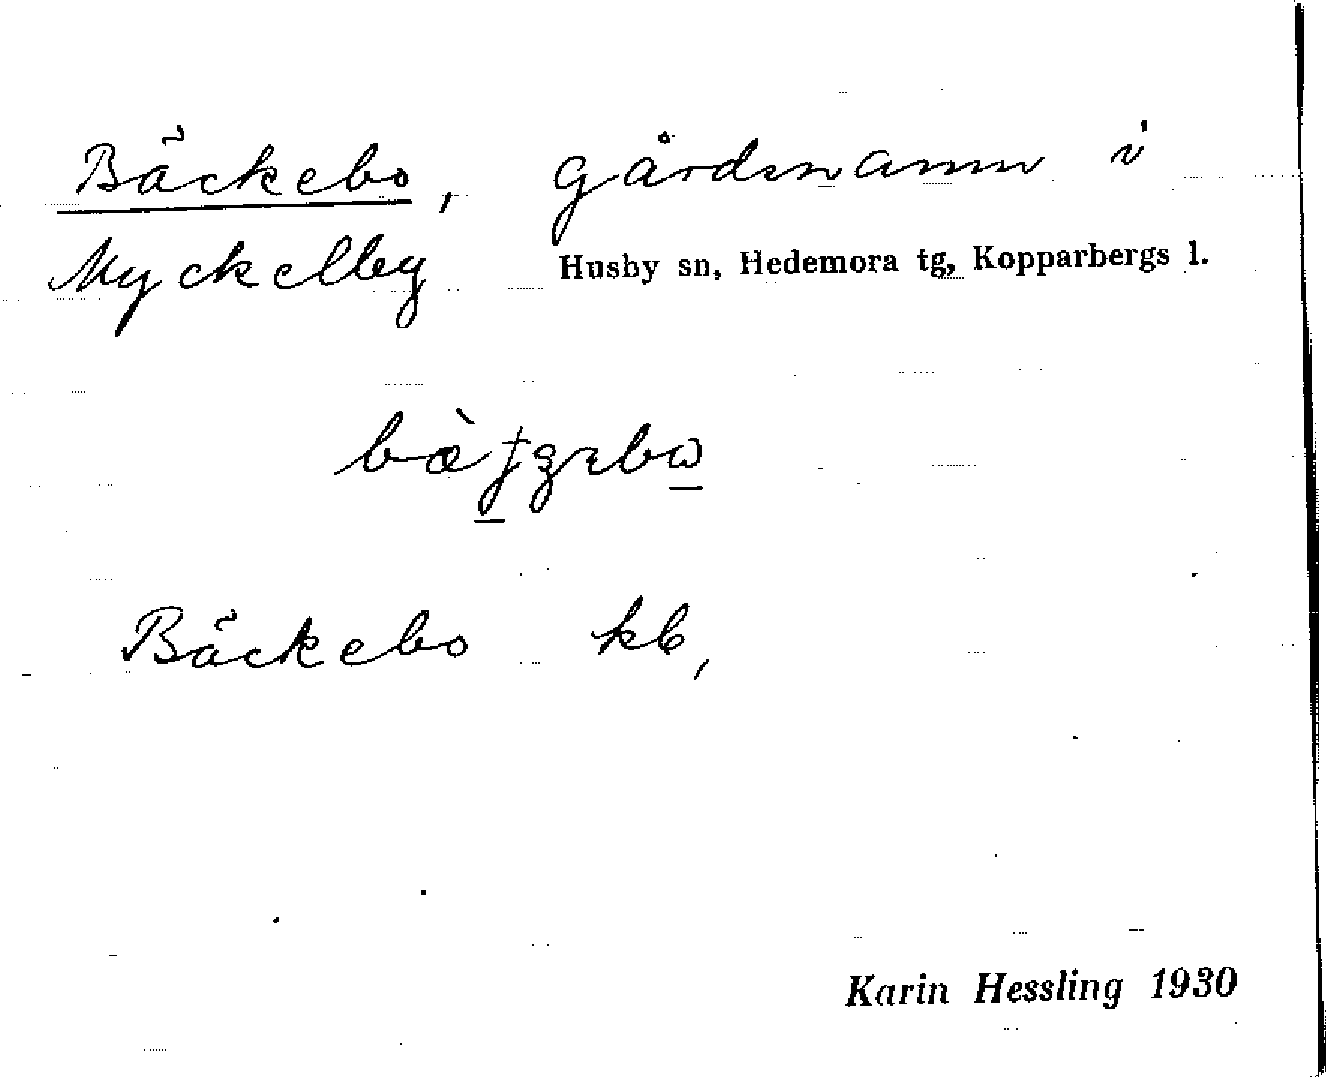 Bäckebo, gårdsnamn i
Myckelby Husby sn, Hedemora tg, Kopparbergs l.
Bäckebo kb,
Karin Hessling 1930